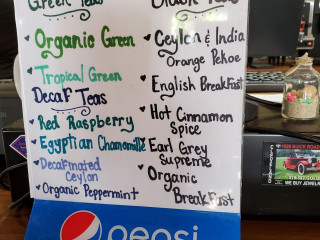 Green Teas
Organic Green
Tropical Green
Decaf Teas
Red Raspberry
Egyptian Chamomille
Decafinated
Ceylon
Organic Peppermint
Black Teas
Ceylon & India
Orange Pekoe
English Breakfast
Hot Cinnamon
Spice
Earl Grey
Supreme
Organic
Breakfast
pepsi